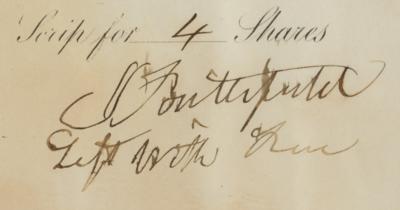 Scrip for 4 Shares
S Butterfield
Left with